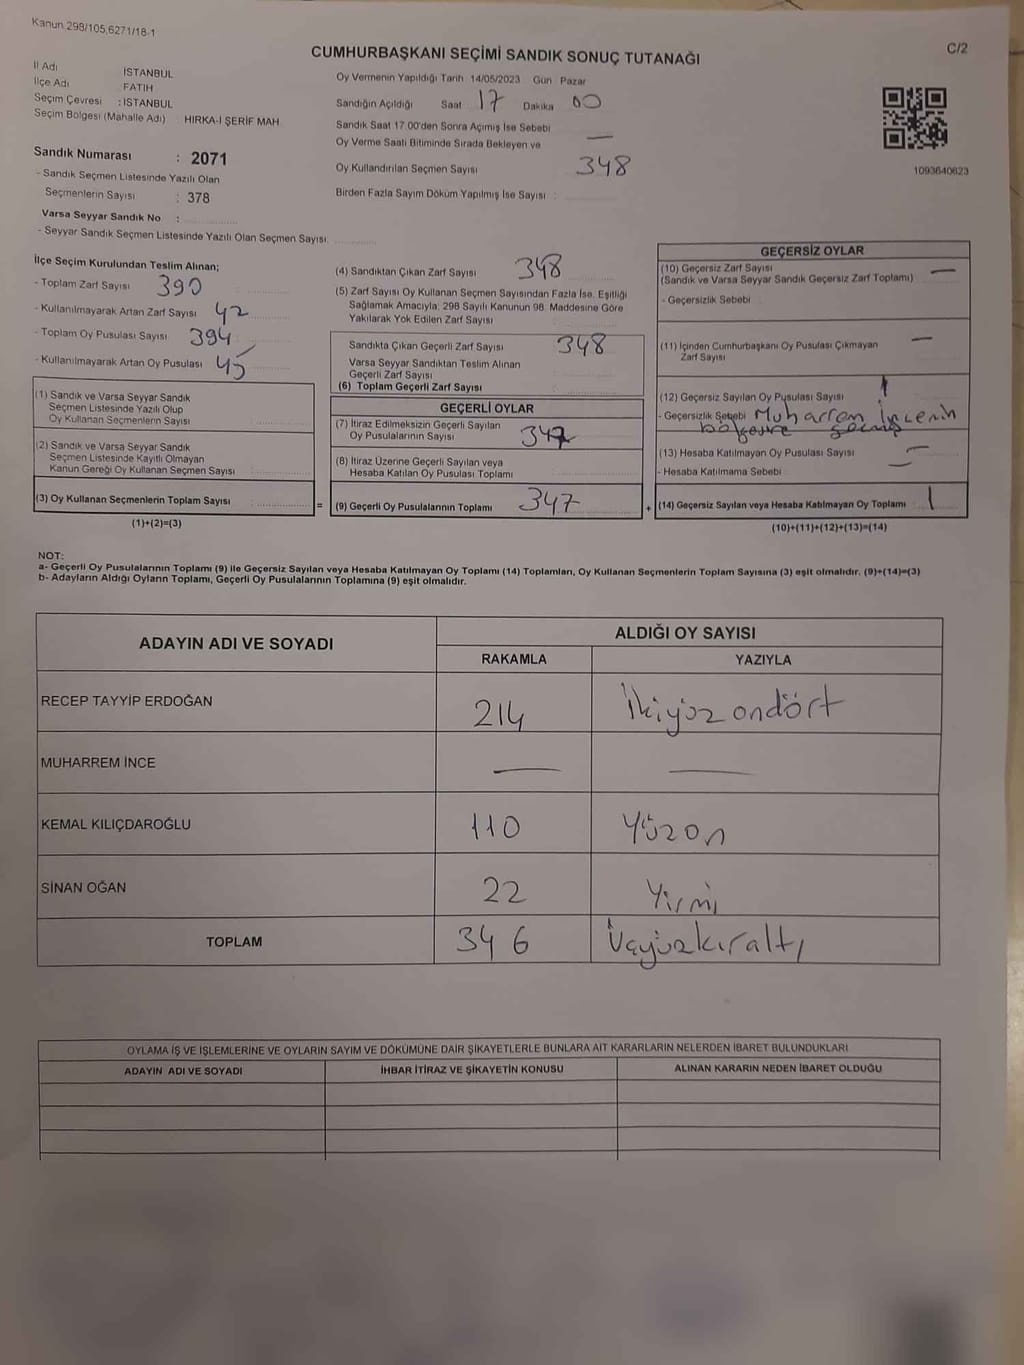 Kanun 298/105,6271/18-1
C/2
CUMHURBAŞKANI SEÇİMİ SANDIK SONUÇ TUTANAĞI
İl Adı : İSTANBUL
İlçe Adı : FATİH
Seçim Çevresi : İSTANBUL
Seçim Bölgesi (Mahalle Adı) : HIRKA-İ ŞERİF MAH.
Sandık Numarası : 2071
- Sandık Seçmen Listesinde Yazılı Olan
Seçmenlerin Sayısı : 378
Varsa Seyyar Sandık No :
- Seyyar Sandık Seçmen Listesinde Yazılı Olan Seçmen Sayısı:
Oy Vermenin Yapıldığı Tarih 14/05/2023 Gün : Pazar
Sandığın Açıldığı Saat 17 Dakika 00
Sandık Saat 17.00'den Sonra Açımış İse Sebebi —
Oy Verme Saati Bitiminde Sırada Bekleyen ve
Oy Kullandırılan Seçmen Sayısı 348
Birden Fazla Sayım Döküm Yapılmış İse Sayısı :
1093640623
İlçe Seçim Kurulundan Teslim Alınan;
- Toplam Zarf Sayısı 390
- Kullanılmayarak Artan Zarf Sayısı 42
- Toplam Oy Pusulası Sayısı 394
- Kullanılmayarak Artan Oy Pusulası 45
(1) Sandık ve Varsa Seyyar Sandık
Seçmen Listesinde Yazılı Olup
Oy Kullanan Seçmenlerin Sayısı :
(2) Sandık ve Varsa Seyyar Sandık
Seçmen Listesinde Kayıtlı Olmayan
Kanun Gereği Oy Kullanan Seçmen Sayısı :
(3) Oy Kullanan Seçmenlerin Toplam Sayısı =
(1)+(2)=(3)
(4) Sandıktan Çıkan Zarf Sayısı 348
(5) Zarf Sayısı Oy Kullanan Seçmen Sayısından Fazla İse, Eşitliği
Sağlamak Amacıyla; 298 Sayılı Kanunun 98. Maddesine Göre
Yakılarak Yok Edilen Zarf Sayısı
Sandıkta Çıkan Geçerli Zarf Sayısı 348
Varsa Seyyar Sandıktan Teslim Alınan
Geçerli Zarf Sayısı
(6) Toplam Geçerli Zarf Sayısı
GEÇERLİ OYLAR
(7) İtiraz Edilmeksizin Geçerli Sayılan
Oy Pusulalarının Sayısı 347
(8) İtiraz Üzerine Geçerli Sayılan veya
Hesaba Katılan Oy Pusulası Toplamı
(9) Geçerli Oy Pusulalarının Toplamı 347 +
GEÇERSİZ OYLAR
(10) Geçersiz Zarf Sayısı —
(Sandık ve Varsa Seyyar Sandık Geçersiz Zarf Toplamı)
- Geçersizlik Sebebi
(11) İçinden Cumhurbaşkanı Oy Pusulası Çıkmayan —
Zarf Sayısı
(12) Geçersiz Sayılan Oy Pusulası Sayısı 1
- Geçersizlik Sebebi Muharrem İncenin
bölgesine geçmiş
(13) Hesaba Katılmayan Oy Pusulası Sayısı —
- Hesaba Katılmama Sebebi —
(14) Geçersiz Sayılan veya Hesaba Katılmayan Oy Toplamı 1
(10)+(11)+(12)+(13)=(14)
NOT:
a- Geçerli Oy Pusulalarının Toplamı (9) ile Geçersiz Sayılan veya Hesaba Katılmayan Oy Toplamı (14) Toplamları, Oy Kullanan Seçmenlerin Toplam Sayısına (3) eşit olmalıdır. (9)+(14)=(3)
b- Adayların Aldığı Oyların Toplamı, Geçerli Oy Pusulalarının Toplamına (9) eşit olmalıdır.
ADAYIN ADI VE SOYADI
ALDIĞI OY SAYISI
RAKAMLA YAZIYLA
RECEP TAYYİP ERDOĞAN 214 İkiyüz ondört
MUHARREM İNCE — —
KEMAL KILIÇDAROĞLU 110 Yüzon
SİNAN OĞAN 22 Yirmi
TOPLAM 346 Üçyüzkıraltı
OYLAMA İŞ VE İŞLEMLERİNE VE OYLARIN SAYIM VE DÖKÜMÜNE DAİR ŞİKAYETLERLE BUNLARA AİT KARARLARIN NELERDEN İBARET BULUNDUKLARI
ADAYIN ADI VE SOYADI İHBAR İTİRAZ VE ŞİKAYETİN KONUSU ALINAN KARARIN NEDEN İBARET OLDUĞU